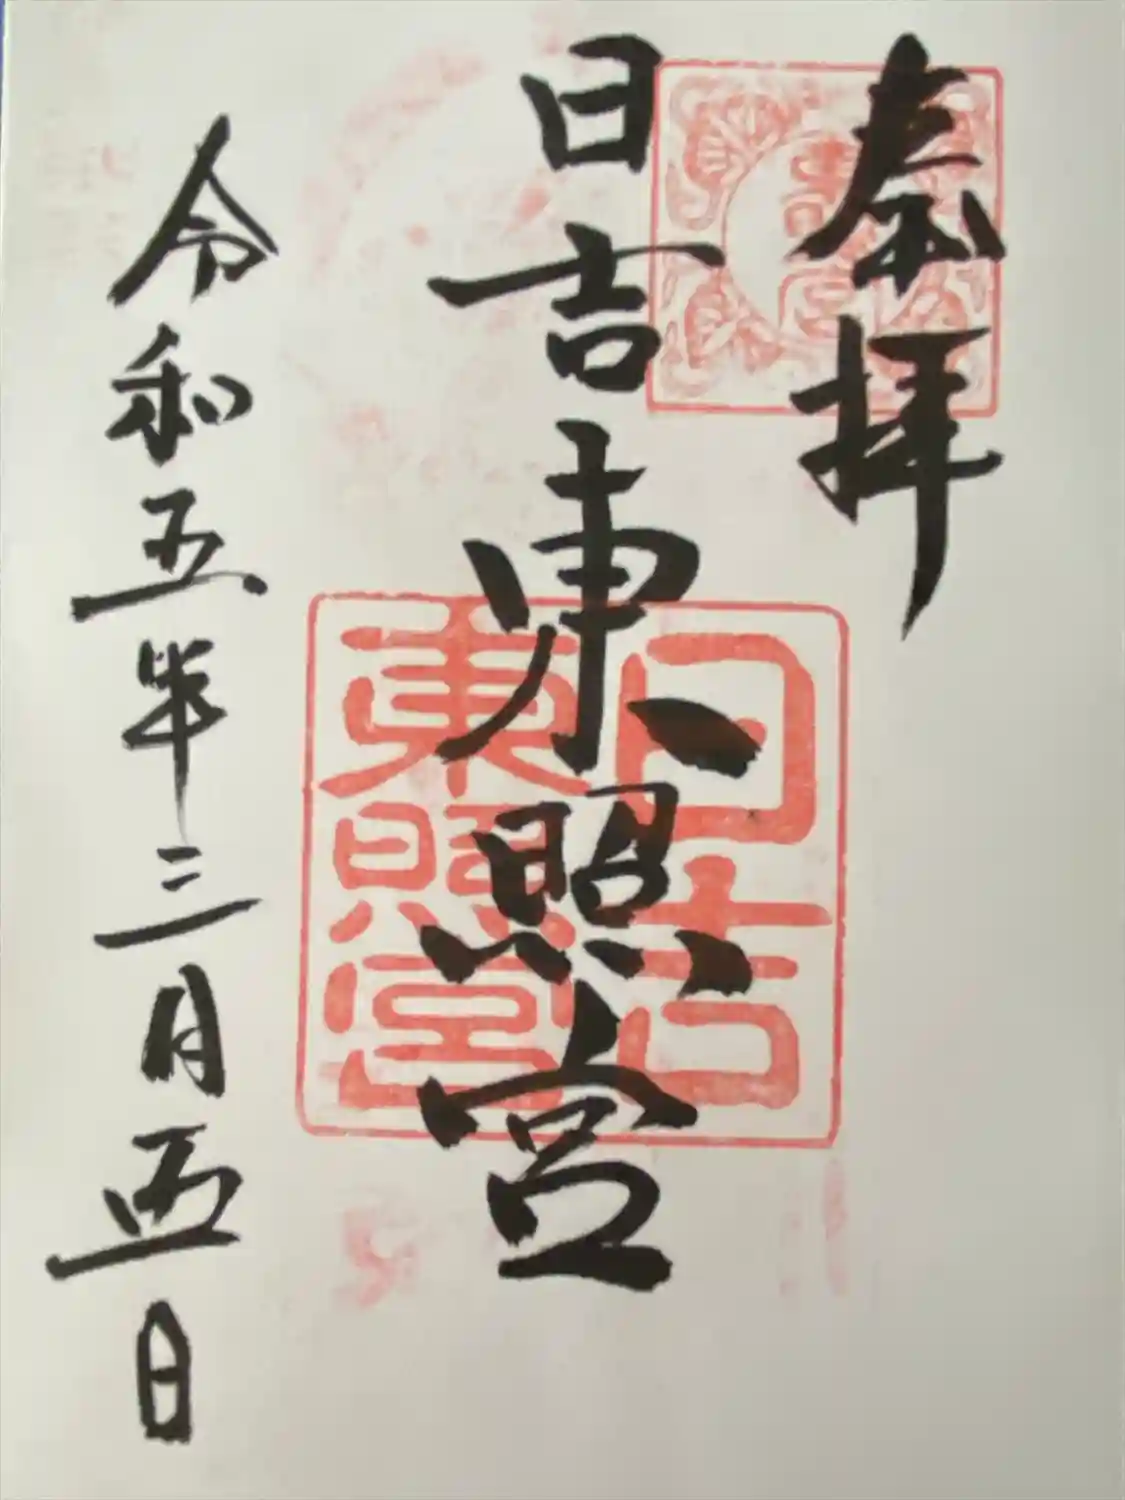 奉拝
日吉東照宮
日吉
東照宮
令和五年三月五日